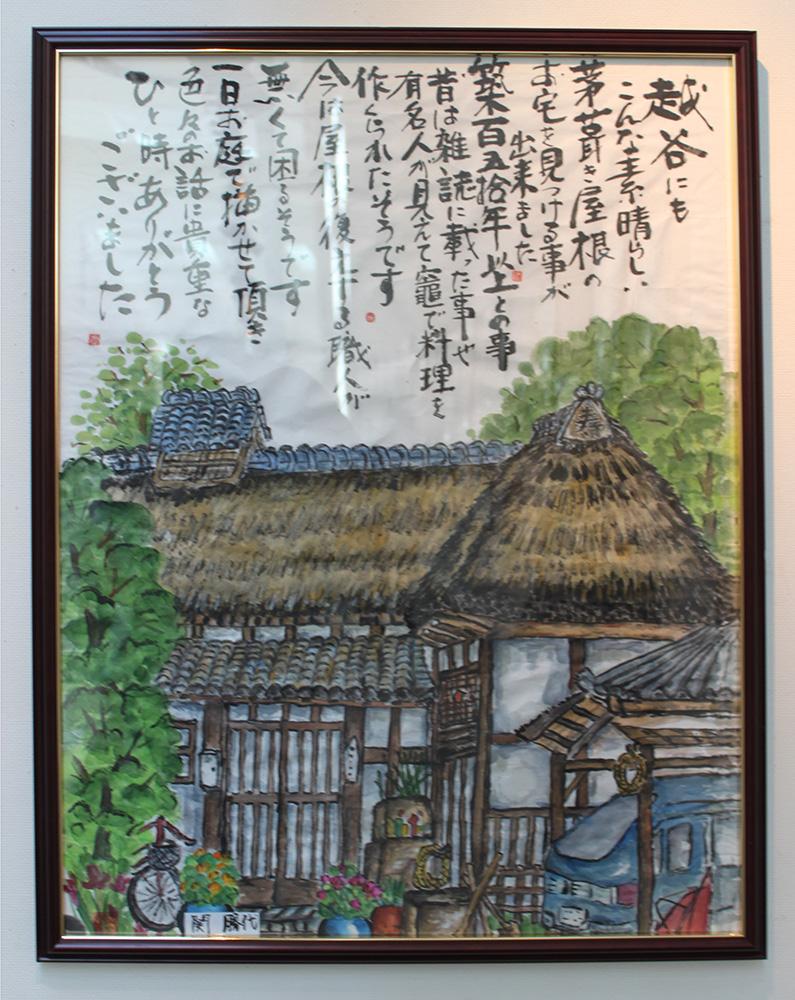 越谷にも
こんな素晴らしい
茅葺き屋根の
お宅を見つける事が
出来ました
築百五拾年以上との事
昔は雑誌に載った事や
有名人が見えて竈で料理を
作くられたそうです
今は屋根の復する職人が
無くて困るそうです
一日お庭で描かせて頂き
色々のお話に貴重な
ひと時ありがとう
ございました
寿
関 勝代